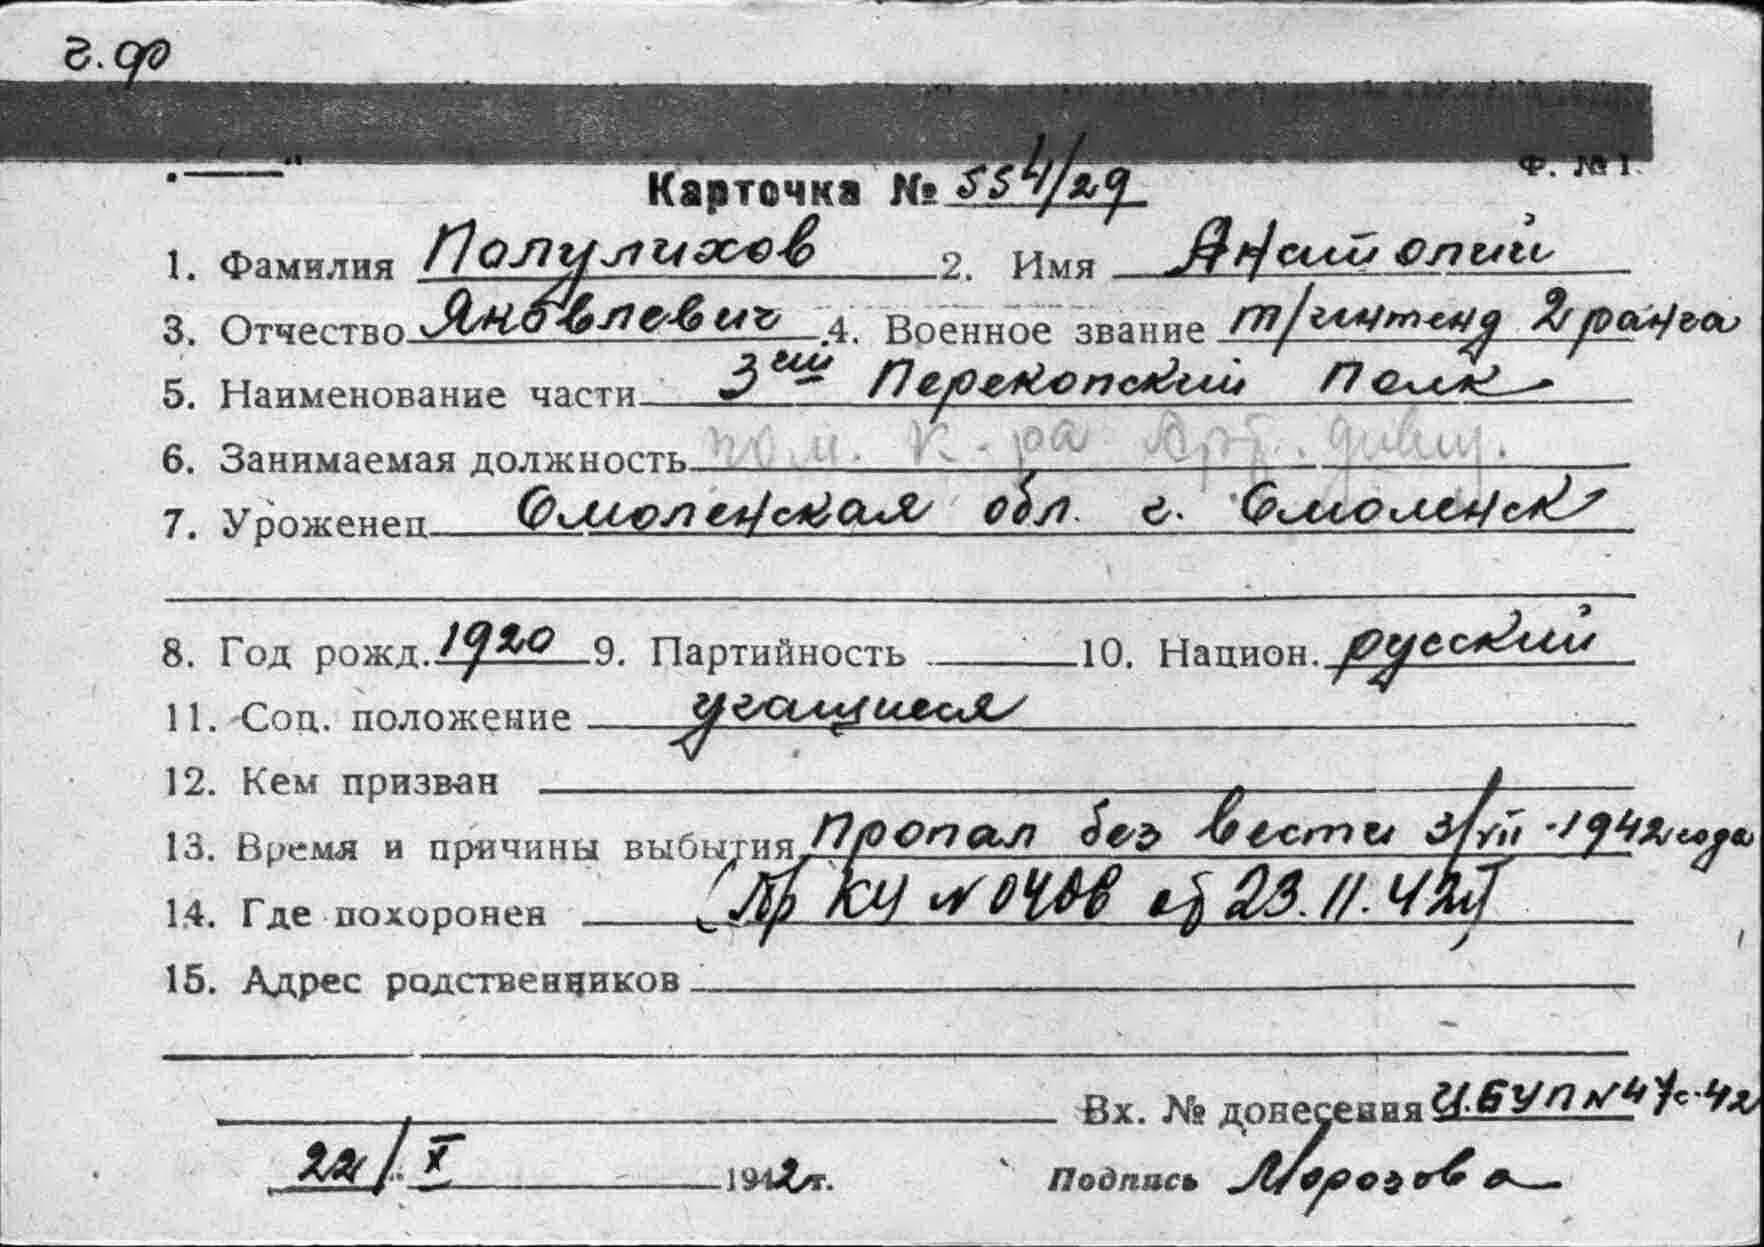 г. ф
Ф. № 1.
Карточка № 554/29
1. Фамилия Полулихов 2. Имя Анатолий
3. Отчество Яковлевич 4. Военное звание т/интенд 2 ранга
5. Наименование части 3ий Перекопский Полк
6. Занимаемая должность пом. к-ра Арт. дивиз.
7. Уроженец Смоленская обл. г. Смоленск
8. Год рожд. 1920 9. Партийность 10. Национ. русский
11. Соц. положение учащиеся
12. Кем призван
13. Время и причины выбытия Пропал без вести 3/VII-1942 года
14. Где похоронен (Пр КУ N 0408 от 23.11.42г)
15. Адрес родственников
Вх. № донесения Ц.БУП N 47с-42
22/X 1942г. Подпись Морозова